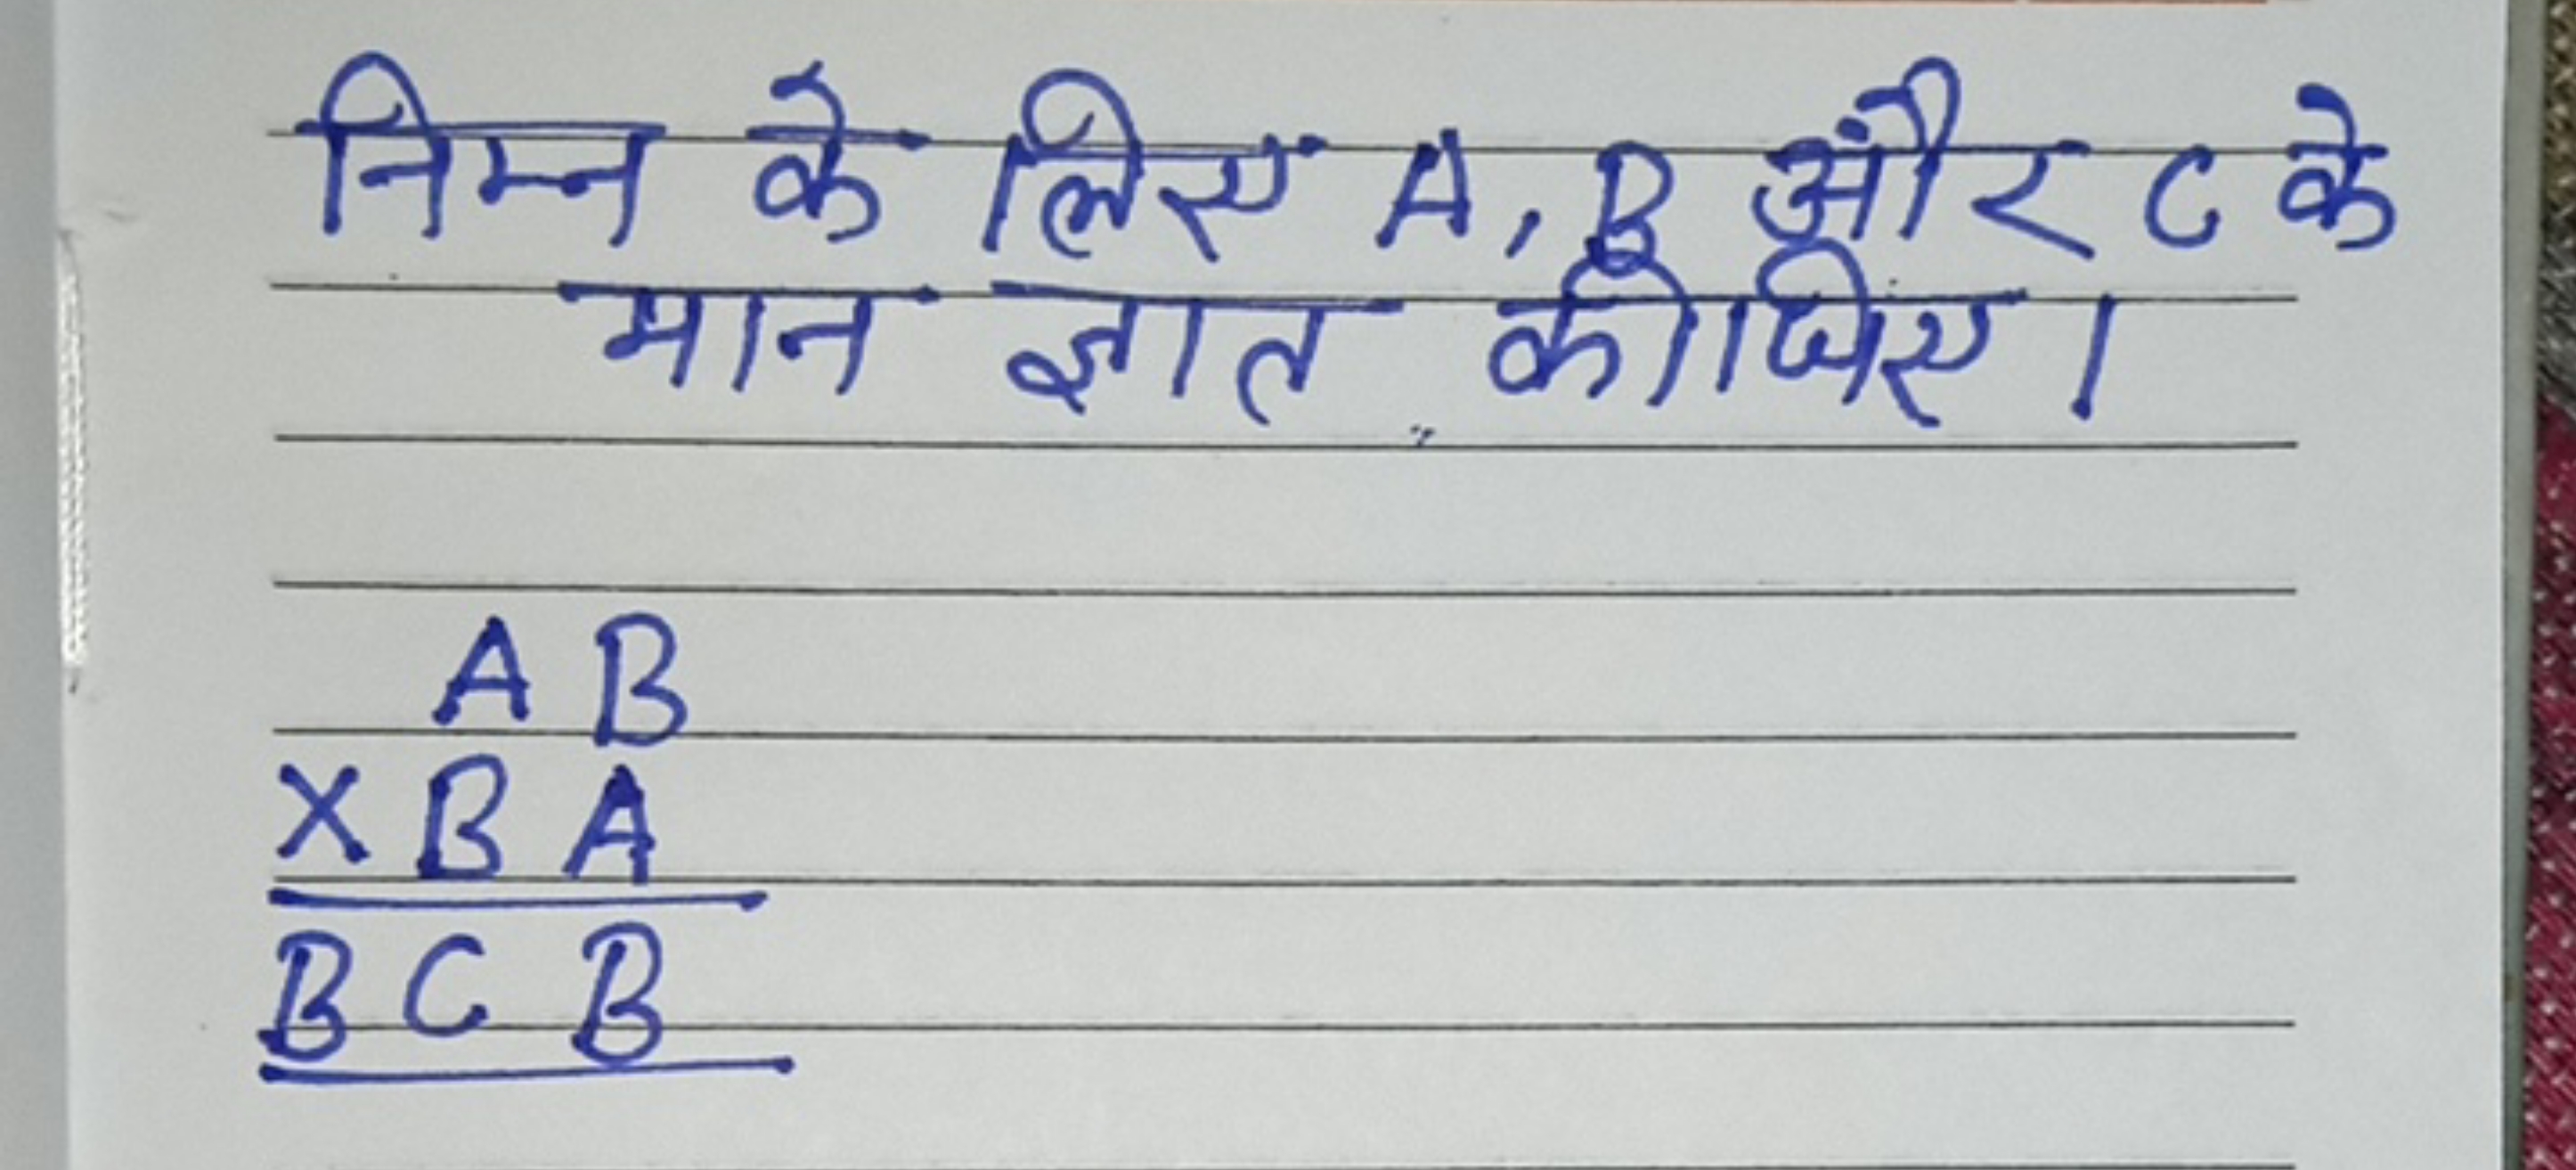 निम्न के लिए A, B और C के
मान ज्ञात कीजिए।
A B
X B A
B C B